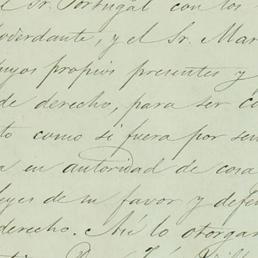 Sr. Portugal con los
oderdante, y el Sr. Mar
uyos propios presentes y
de derecho, para ser co
to como si fuera por sen
a en autoridad de cosa
leyes de su favor y defen
derecho. Así lo otorgar